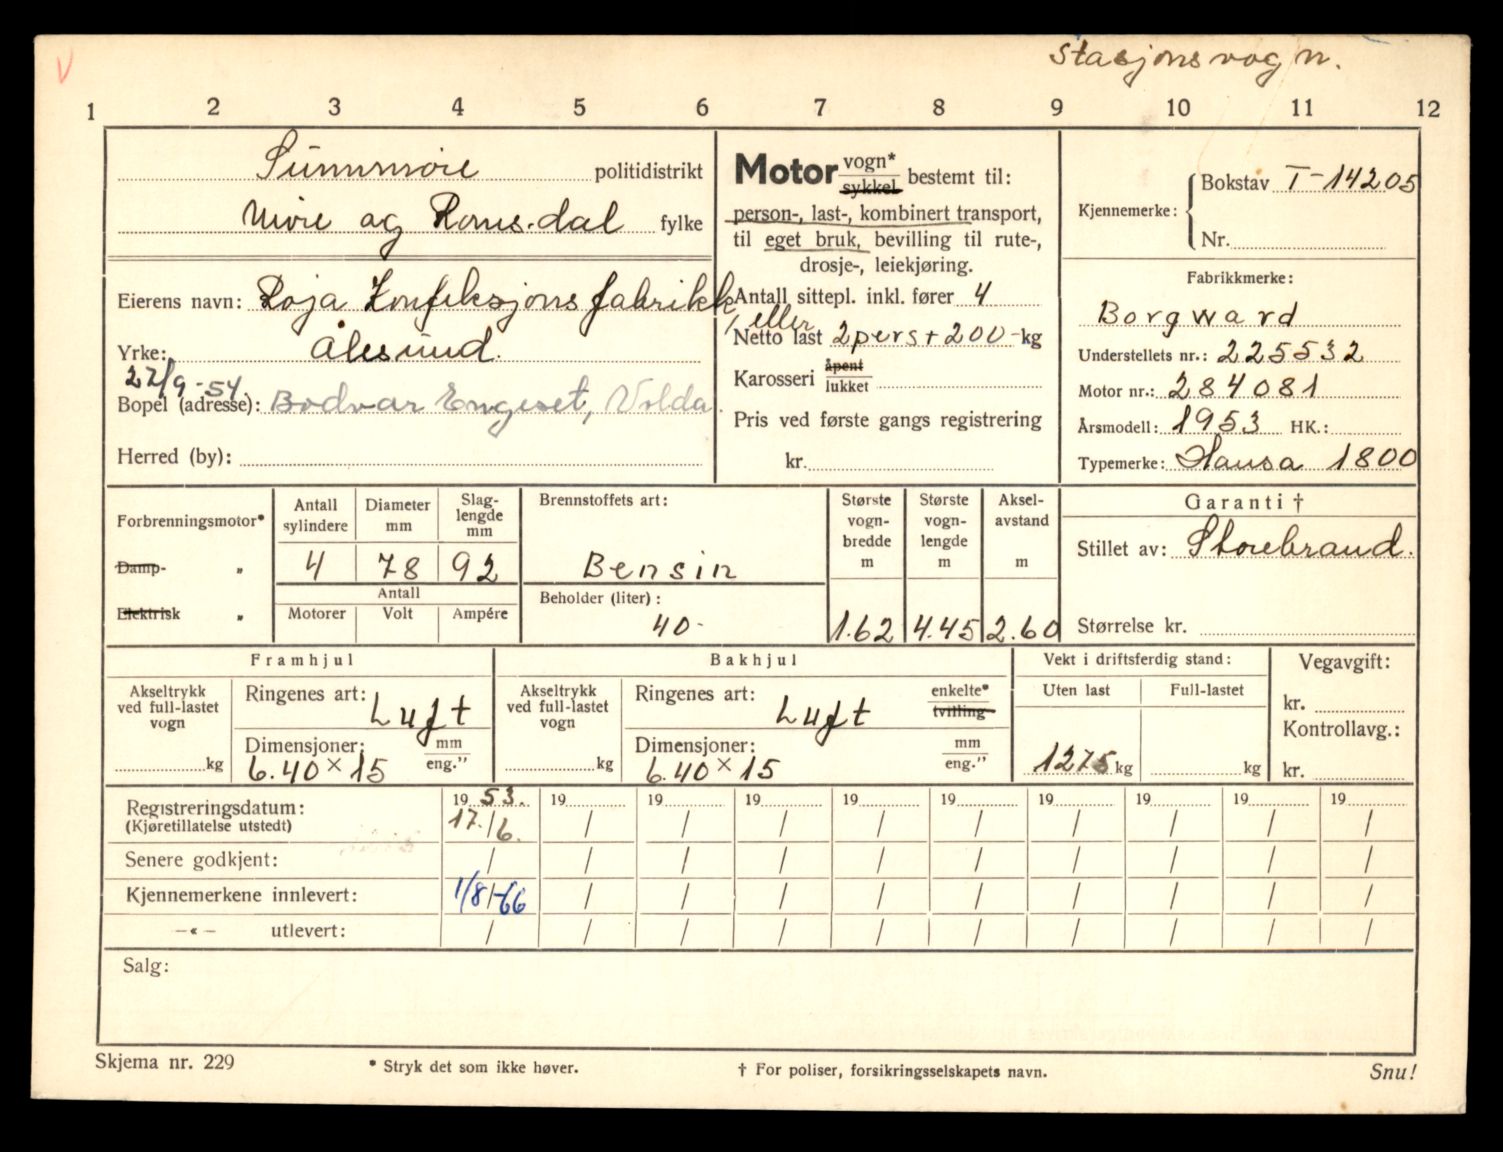 V
Stasjonsvogn.
1 2 3 4 5 6 7 8 9 10 11 12
Sunnmøre politidistrikt
Møre og Romsdal fylke
Eierens navn: Roja Konfeksjonsfabrikk,
Yrke: Ålesund.
27/9-54.
Bopel (adresse): Bodvar Engeset, Volda.
Herred (by):
Motor vogn* bestemt til:
sykkel
person-, last-, kombinert transport,
til eget bruk, bevilling til rute-,
drosje-, leiekjøring.
Antall sittepl. inkl. fører 4
, eller
Netto last 2 pers + 200- kg
Karosseri åpent
lukket
Pris ved første gangs registrering
kr.
Kjennemerke: Bokstav T-14205
Nr.
Fabrikkmerke:
Borgward
Understellets nr.: 225532
Motor nr.: 284081
Årsmodell: 1953 HK.:
Typemerke: Hansa 1800
Forbrenningsmotor*
Damp- „
Elektrisk „
Antall sylindere
Diameter mm
Slaglengde mm
4 78 92
Antall
Motorer Volt Ampére
Brennstoffets art:
Bensin
Beholder (liter):
40-
Største vognbredde m
Største vognlengde m
Akselavstand m
1.62 4.45 2.60
Garanti †
Stillet av: Storebrand.
Størrelse kr.
Framhjul
Akseltrykk ved full-lastet vogn
kg
Ringenes art: Luft
Dimensjoner: mm
6.40 × 15 eng.”
Bakhjul
Akseltrykk ved full-lastet vogn
kg
Ringenes art: Luft enkelte*
tvilling
Dimensjoner: mm
6.40 × 15 eng.”
Vekt i driftsferdig stand:
Uten last Full-lastet
1275 kg kg
Vegavgift:
kr.
Kontrollavg.:
kr.
Registreringsdatum: 1953. 19 19 19 19 19 19 19 19 19
(Kjøretillatelse utstedt) 17./6. / / / / / / / / /
Senere godkjent: / / / / / / / / / /
Kjennemerkene innlevert: 1/8/-66 / / / / / / / / /
—«— utlevert: / / / / / / / / / /
Salg:
Skjema nr. 229
* Stryk det som ikke høver.
† For poliser, forsikringsselskapets navn.
Snu!